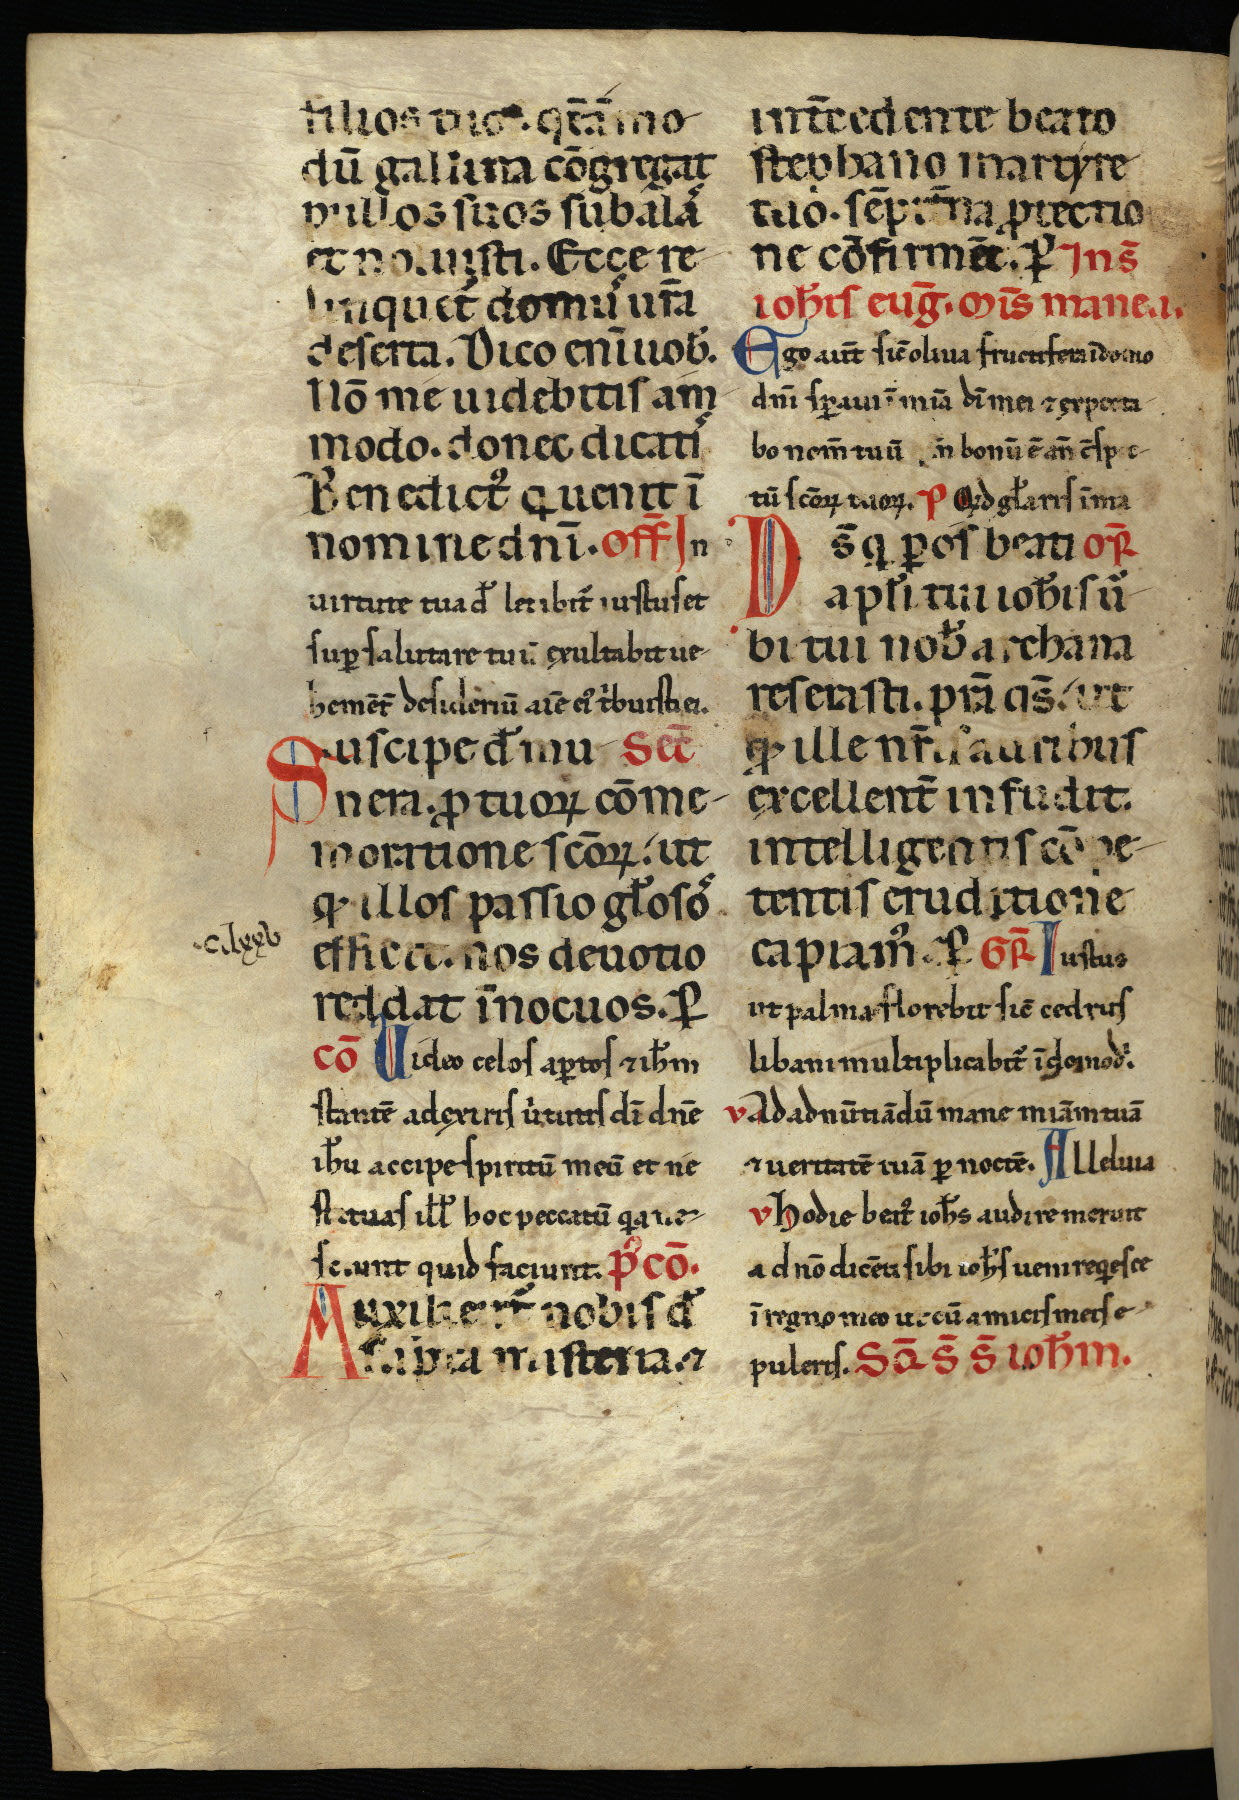 filios tuos. q̄tāmo
dū gallina cōgregat
pullos suos sub alaˢ
et noluisti. Ecce re
linquet᷑ domuˢ ur̄a
deserta. Dico enī uob̄.
Nō me uidebitis am
modo. donec dicatiˢ
Benedictꝰ q uenit ī
nomine dn̄i. Off̄ In
uirtute tua d̄ letabit᷑ iustus et
suꝑ salutare tuū exultabit ue
hemēt᷑ desideriū aīe eiꝰ t'buisti ei.
Suscipe dn̄e mu Sec̄
nera. ꝓ tuoꝝ cōme
moratione sc̄oꝝ. ut
q illos passio gl̄osoˢ
effecit. nos deuotio
reddat īnocuos. ꝑ
c.lxxv
cō Uideo celos aꝑtos ⁊ ih̄m
stantē a dextris ūtutis dī dn̄e
ih̄u accipe spiritū meū et ne
statuas ill̄ hoc peccatū quia ne
sciunt quid faciunt. P'cō.
Auxilient᷑ nobis d̄
sūpta misteria. ⁊
int̄cedente beato
stephano martyre
tuo. sēpit̄na ꝓtectio
ne cōfirmēt. ꝑ In s̄
ioh̄is euḡ. Mīs mane.i.
Ego aut̄ sic̄ oliua fructifera ī domo
dn̄i sꝑaui ī mīa dī mei ⁊ expecta
bo nom̄ tuū qn̄ bonū ē an̄ c̄spec
tū sc̄oꝝ tuoꝝ. P Qid gl̄aris ī ma
Ds̄ q ꝑ os beati or̄
apl̄i tui ioh̄is ūˢ
bi tui nob̄ archana
reserasti. pr̄a q̄s. ut
q ille nr̄is auribus
excellent᷑ infudit.
intelligentis cōpe
tentis eruditione
capiamꝰ. ꝑ GR̄ Iustus
ut palma florebit sic̄ cedrus
libani multiplicabit᷑ ī domo d'.
v Ad adnūtiādū mane mīam tuā
⁊ ueritatē tuā ꝑ noctē. Alleluia
v Hodie beatꝰ ioh̄s audire meruit
a dn̄o dicēti sibi ioh̄s ueni req̄esce
ī regno meo ut cū amicis meis e
puleris. Sc̄a s̄ s̄ ioh̄m.